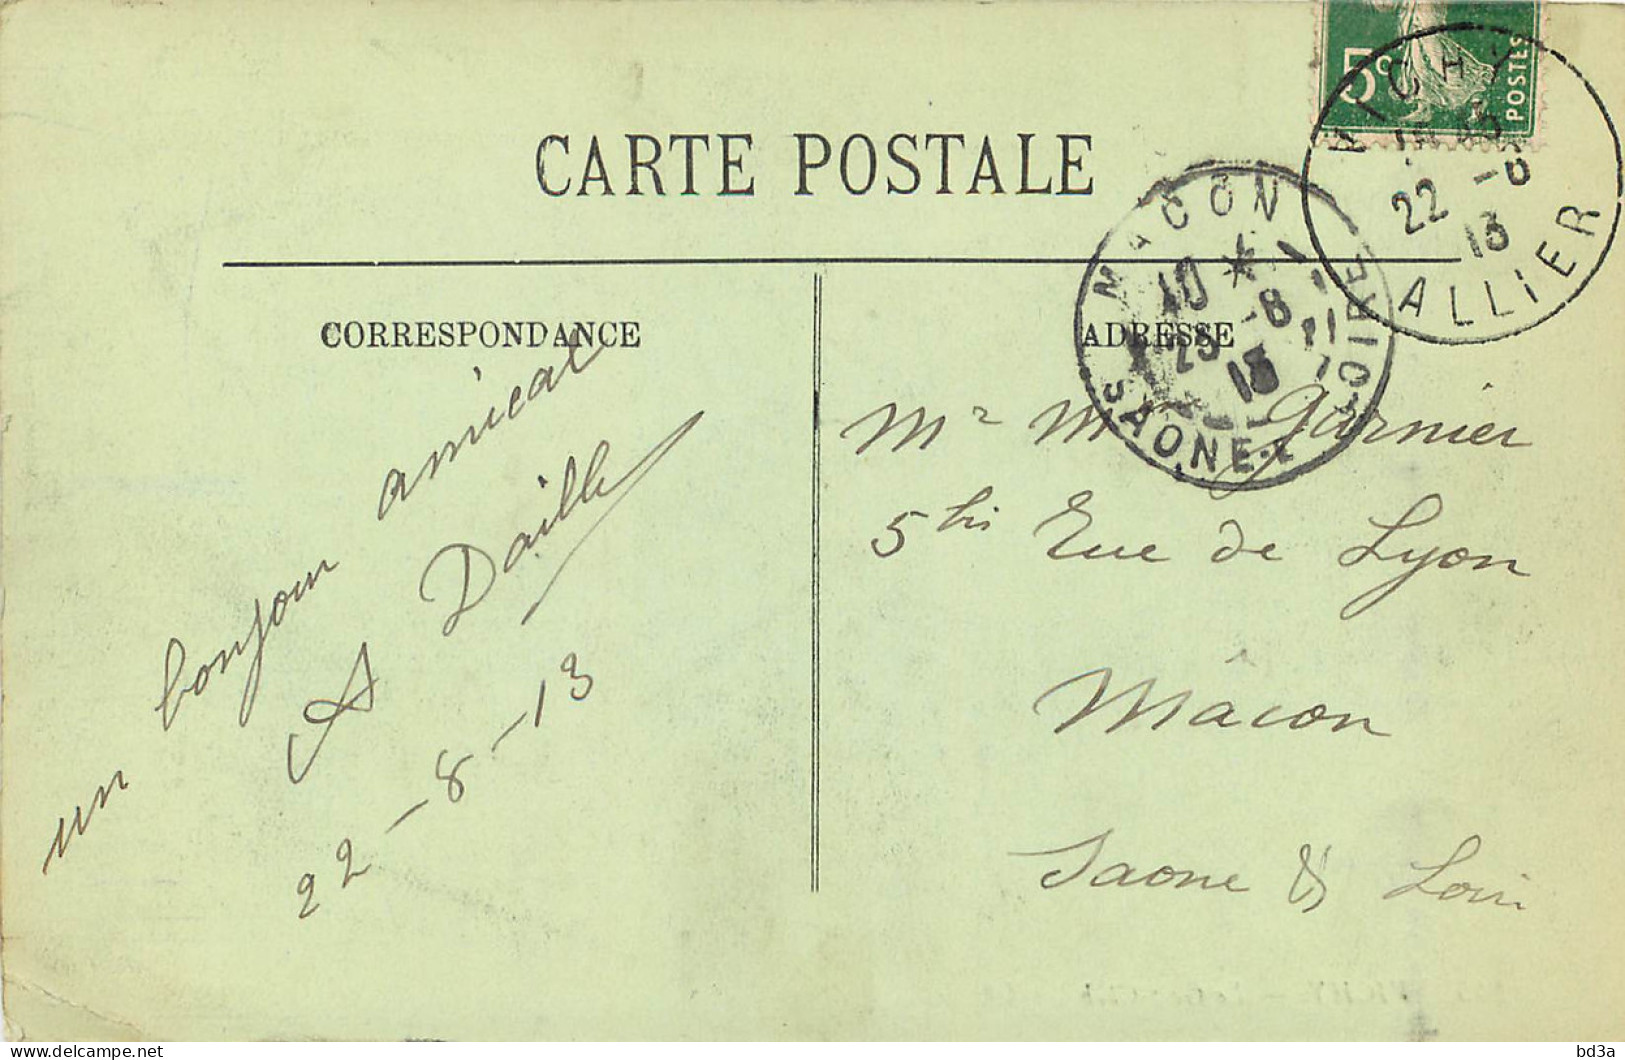 5c
POSTES
VICHY
22 -8
13
ALLIER
CARTE POSTALE
MACON
10 *
23 -8
13
SAONE-ET-LOIRE
CORRESPONDANCE
ADRESSE
un bonjour amical
A Dailly
22-8-13
Mr Mme Garnier
5 bis Rue de Lyon
Mâcon
Saone & Loire
bd3a